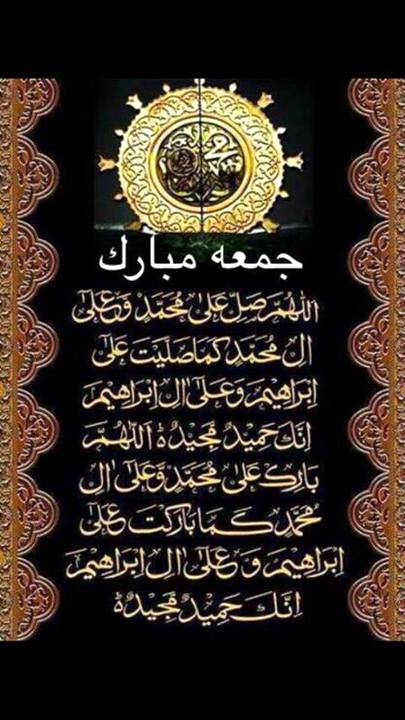 جمعه مبارك
اَللّٰهُمَّ صَلِّ عَلٰى مُحَمَّدٍ وَّعَلٰٓى
اٰلِ مُحَمَّدٍ كَمَا صَلَّيْتَ عَلٰٓى
اِبْرَاهِيْمَ وَعَلٰٓى اٰلِ اِبْرَاهِيْمَ
اِنَّكَ حَمِيْدٌ مَّجِيْدٌ ۃ اَللّٰهُمَّ
بَارِكْ عَلٰى مُحَمَّدٍ وَّعَلٰٓى اٰلِ
مُحَمَّدٍ كَمَا بَارَكْتَ عَلٰٓى
اِبْرَاهِيْمَ وَعَلٰٓى اٰلِ اِبْرَاهِيْمَ
اِنَّكَ حَمِيْدٌ مَّجِيْدٌ ۃ